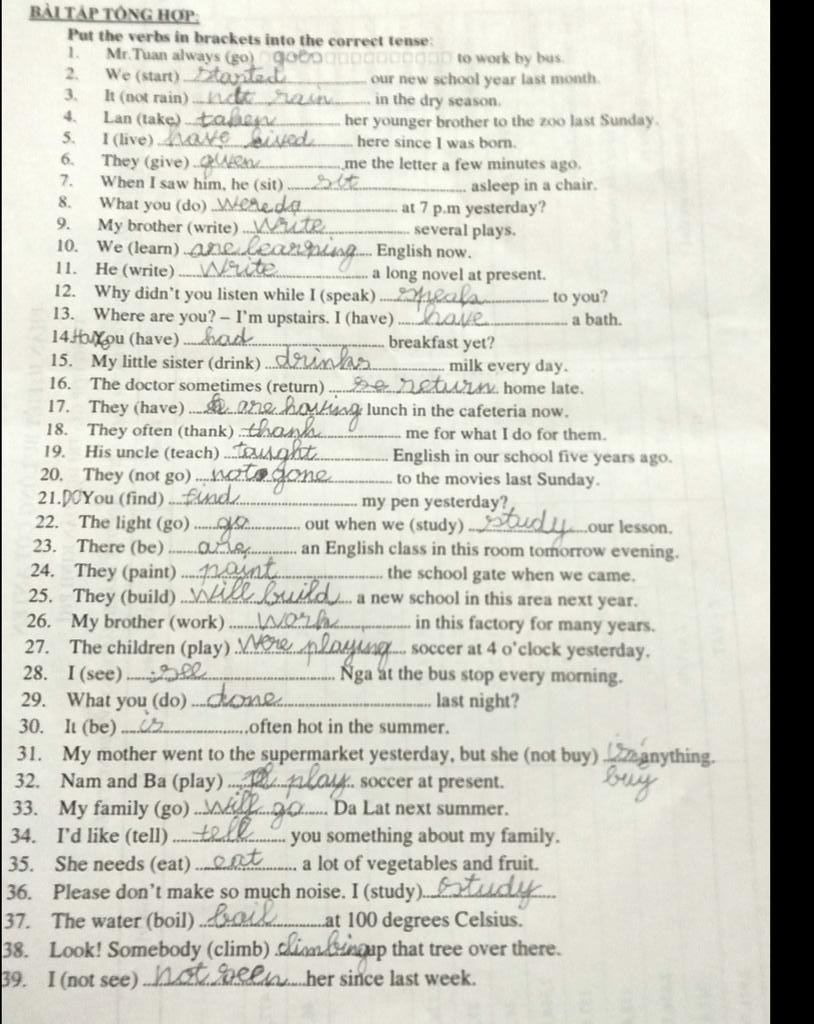 BÀI TẬP TỔNG HỢP:
Put the verbs in brackets into the correct tense:
1. Mr.Tuan always (go) goes to work by bus.
2. We (start) started our new school year last month.
3. It (not rain) not rain in the dry season.
4. Lan (take) taken her younger brother to the zoo last Sunday.
5. I (live) have lived here since I was born.
6. They (give) given me the letter a few minutes ago.
7. When I saw him, he (sit) sit asleep in a chair.
8. What you (do) were do at 7 p.m yesterday?
9. My brother (write) write several plays.
10. We (learn) are learning English now.
11. He (write) write a long novel at present.
12. Why didn't you listen while I (speak) speak to you?
13. Where are you? – I'm upstairs. I (have) have a bath.
14. Have You (have) had breakfast yet?
15. My little sister (drink) drinks milk every day.
16. The doctor sometimes (return) return home late.
17. They (have) are having lunch in the cafeteria now.
18. They often (thank) thank me for what I do for them.
19. His uncle (teach) taught English in our school five years ago.
20. They (not go) not gone to the movies last Sunday.
21. DO You (find) find my pen yesterday?
22. The light (go) go out when we (study) study our lesson.
23. There (be) are an English class in this room tomorrow evening.
24. They (paint) paint the school gate when we came.
25. They (build) will build a new school in this area next year.
26. My brother (work) work in this factory for many years.
27. The children (play) were playing soccer at 4 o'clock yesterday.
28. I (see) see Nga at the bus stop every morning.
29. What you (do) done last night?
30. It (be) is often hot in the summer.
31. My mother went to the supermarket yesterday, but she (not buy) anything.
buy
32. Nam and Ba (play) play soccer at present.
33. My family (go) will go Da Lat next summer.
34. I'd like (tell) tell you something about my family.
35. She needs (eat) eat a lot of vegetables and fruit.
36. Please don't make so much noise. I (study) study
37. The water (boil) boil at 100 degrees Celsius.
38. Look! Somebody (climb) climbing up that tree over there.
39. I (not see) not seen her since last week.